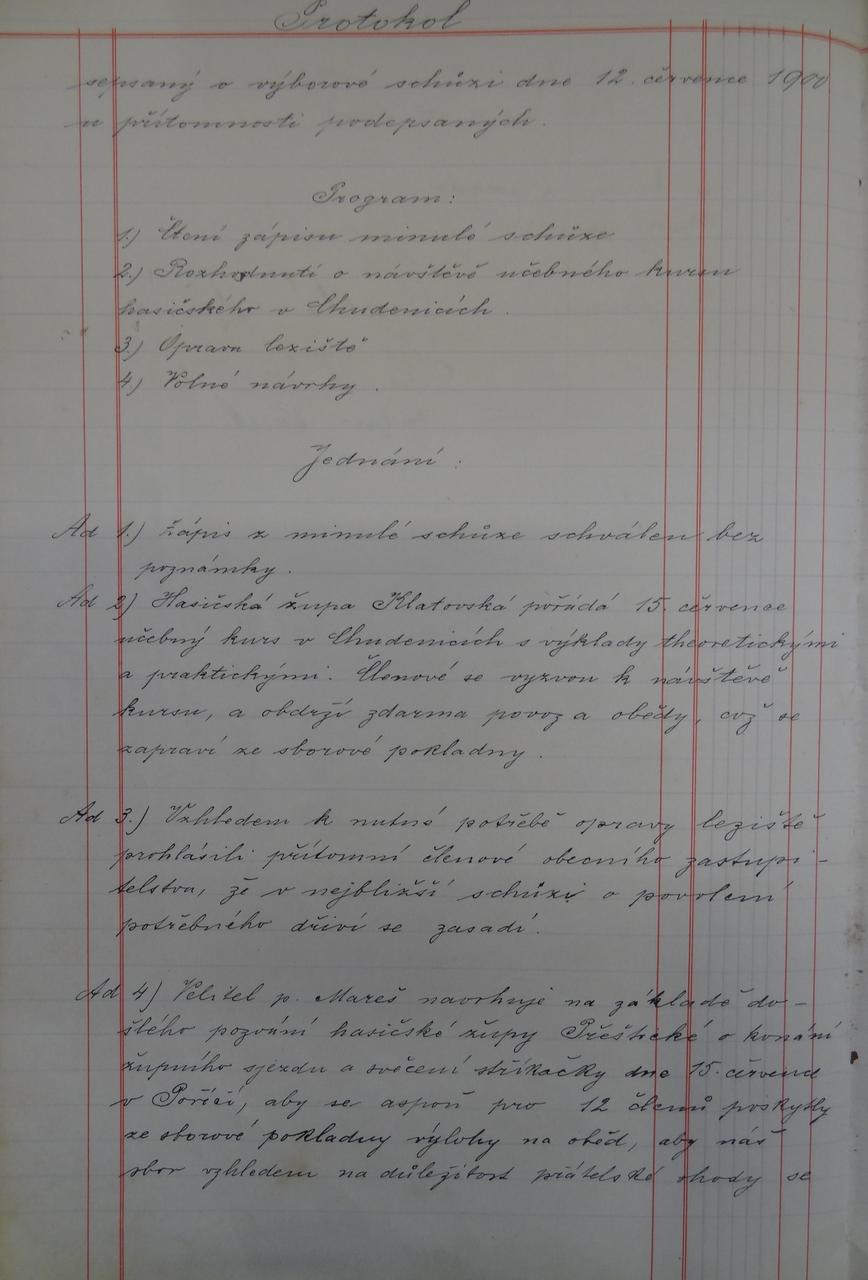 Protokol
sepsaný o výborové schůzi dne 12. července 1900
u přítomnosti podepsaných.
Program:
1.) Čtení zápisu minulé schůze
2.) Rozhodnutí o návštěvě učebného kursu
hasičského v Chudenicích.
3.) Oprava leziště
4.) Volné návrhy.
Jednání:
Ad 1.) Zápis z minulé schůze schválen bez
poznámky.
Ad 2) Hasičská župa Klatovská pořádá 15. července
učebný kurs v Chudenicích s výklady theoretickými
a praktickými. Členové se vyzvou k návštěvě
kursu, a obdrží zdarma povoz a obědy, což se
zapraví ze sborové pokladny.
Ad 3.) Vzhledem k nutné potřebě opravy leziště
prohlásili přítomní členové obecního zastupi-
telstva, že v nejbližší schůzi o povolení
potřebného dříví se zasadí.
Ad 4) Velitel p. Mareš navrhuje na základě do-
šlého pozvání hasičské župy Přeštické o konání
župního sjezdu a svěcení stříkačky dne 15. červená
v Poříčí, aby se aspoň pro 12 členů poskytly
ze sborové pokladny výlohy na oběd, aby náš
sbor vzhledem na důležitost přátelské shody se